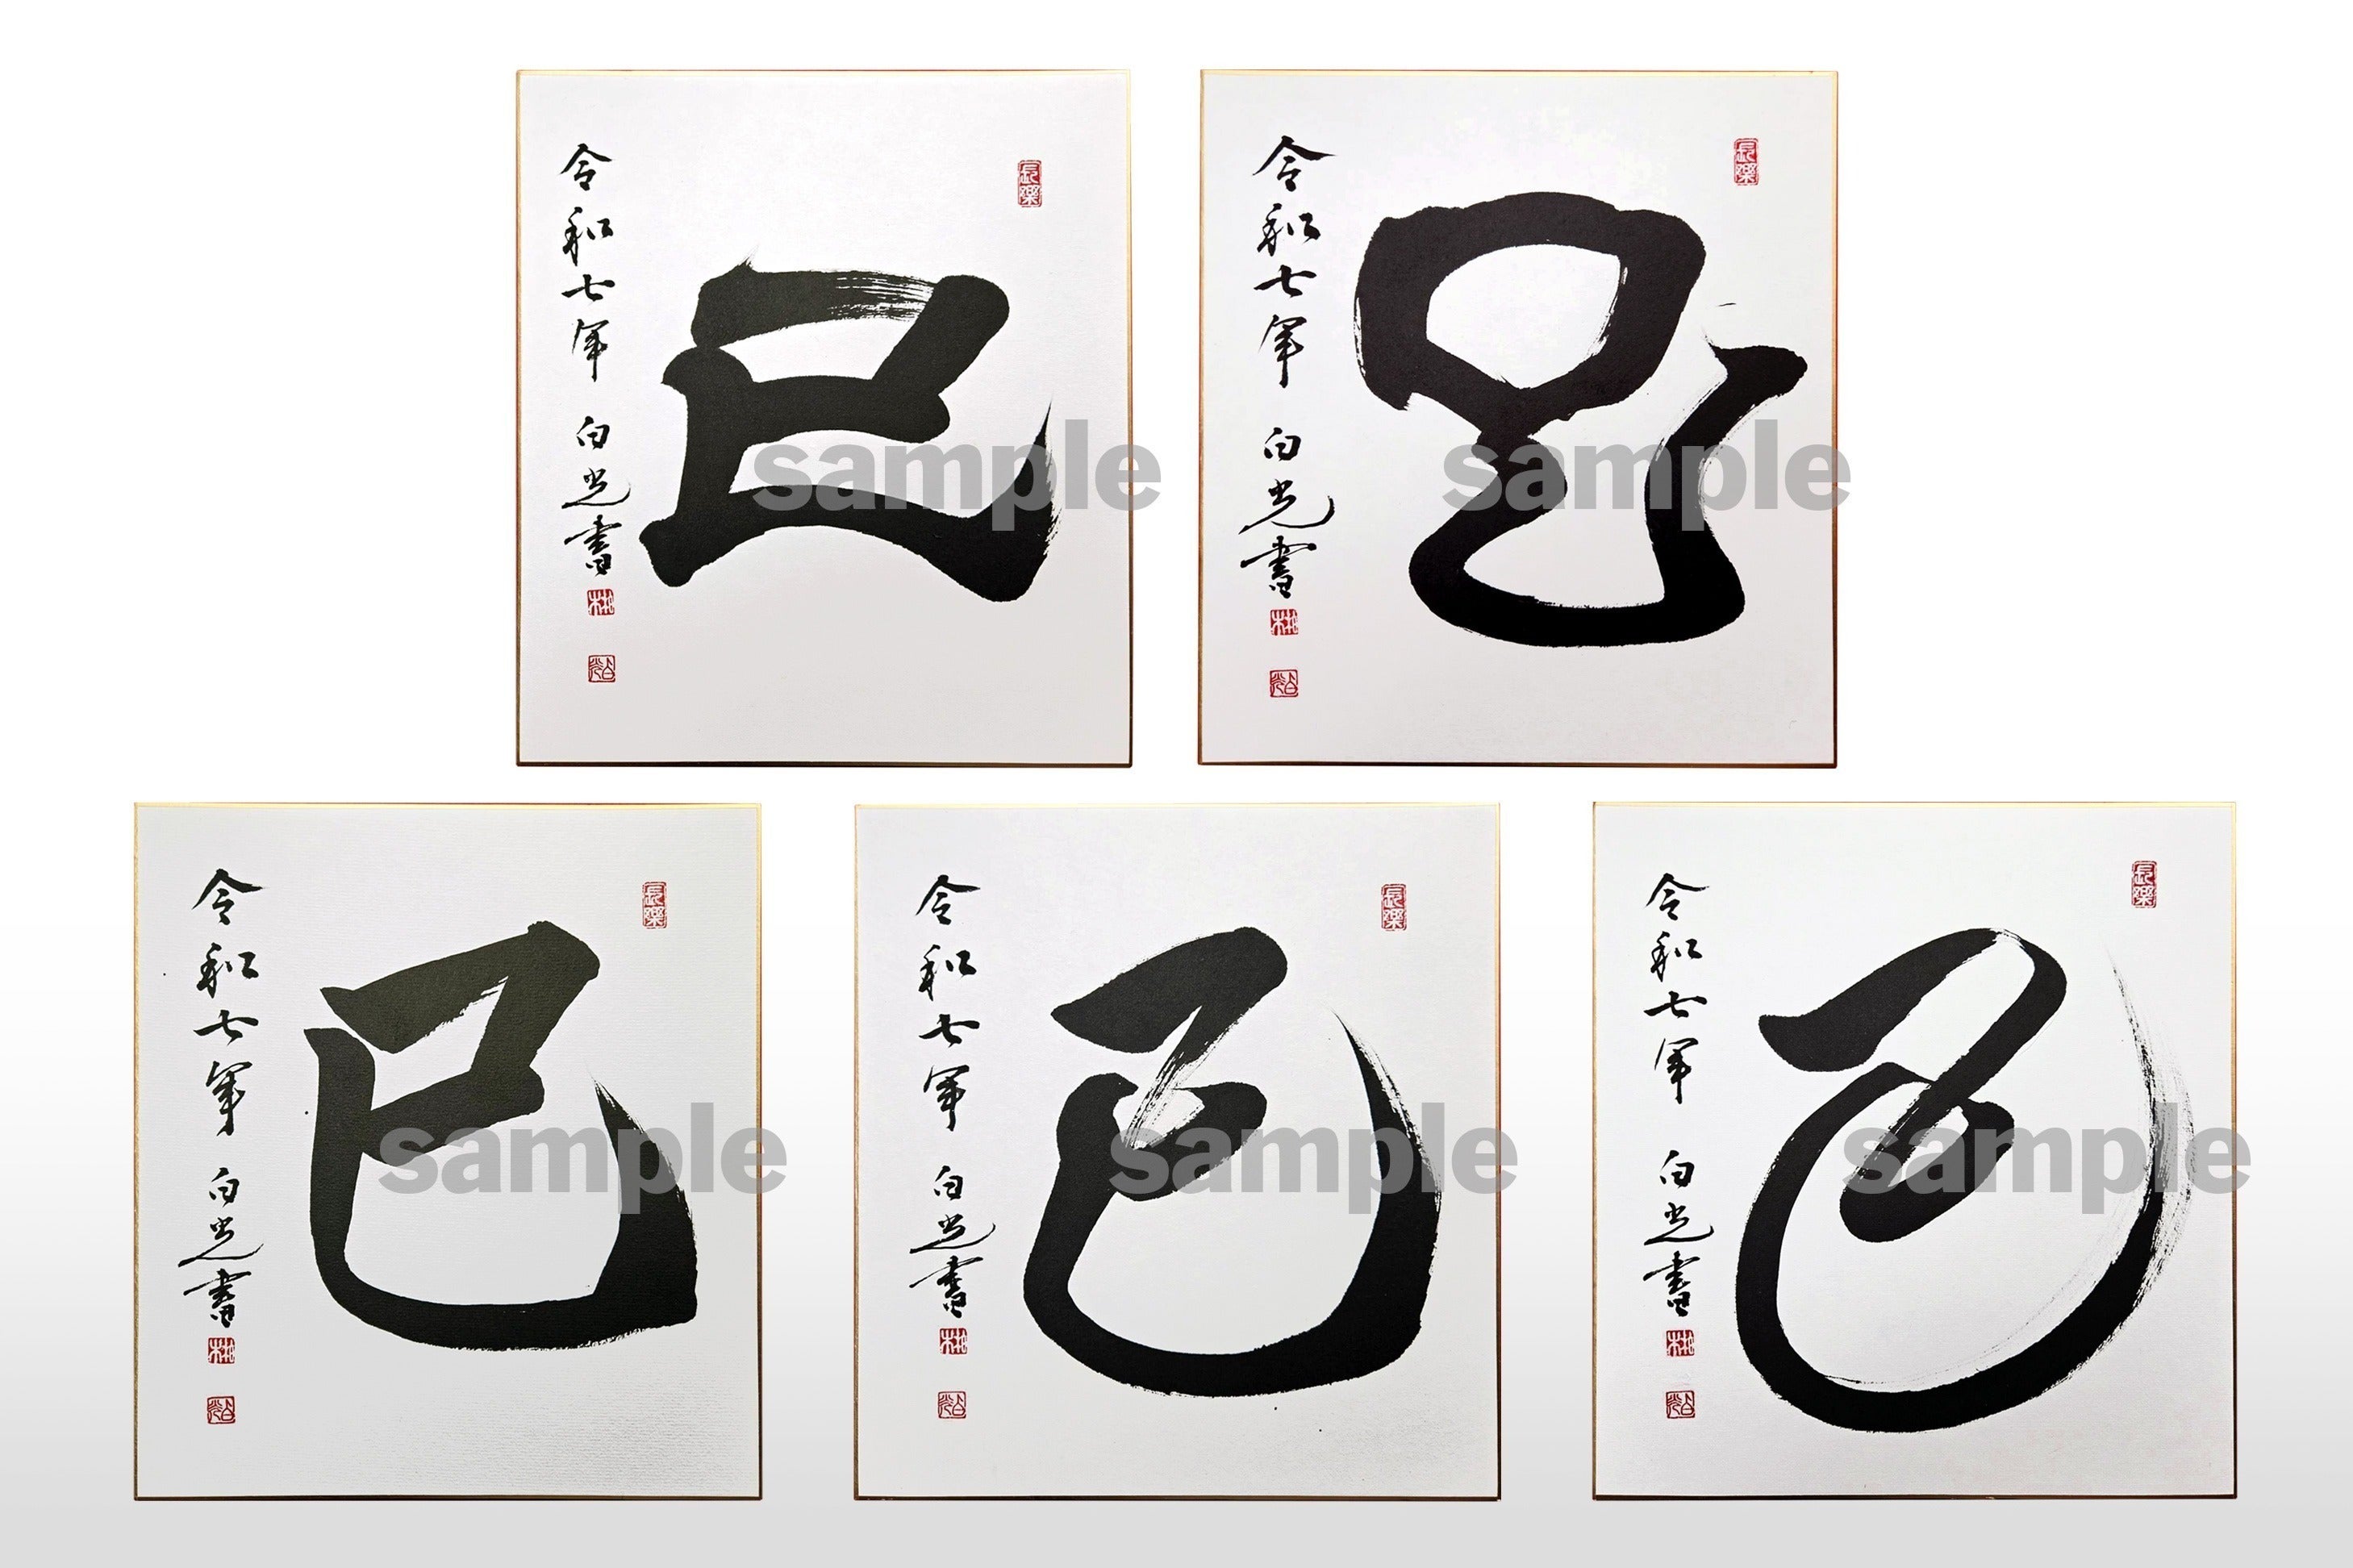 巳
令和七年 白光書
sample
巳
令和七年 白光書
sample
巳
令和七年 白光書
sample
巳
令和七年 白光書
sample
巳
令和七年 白光書
sample